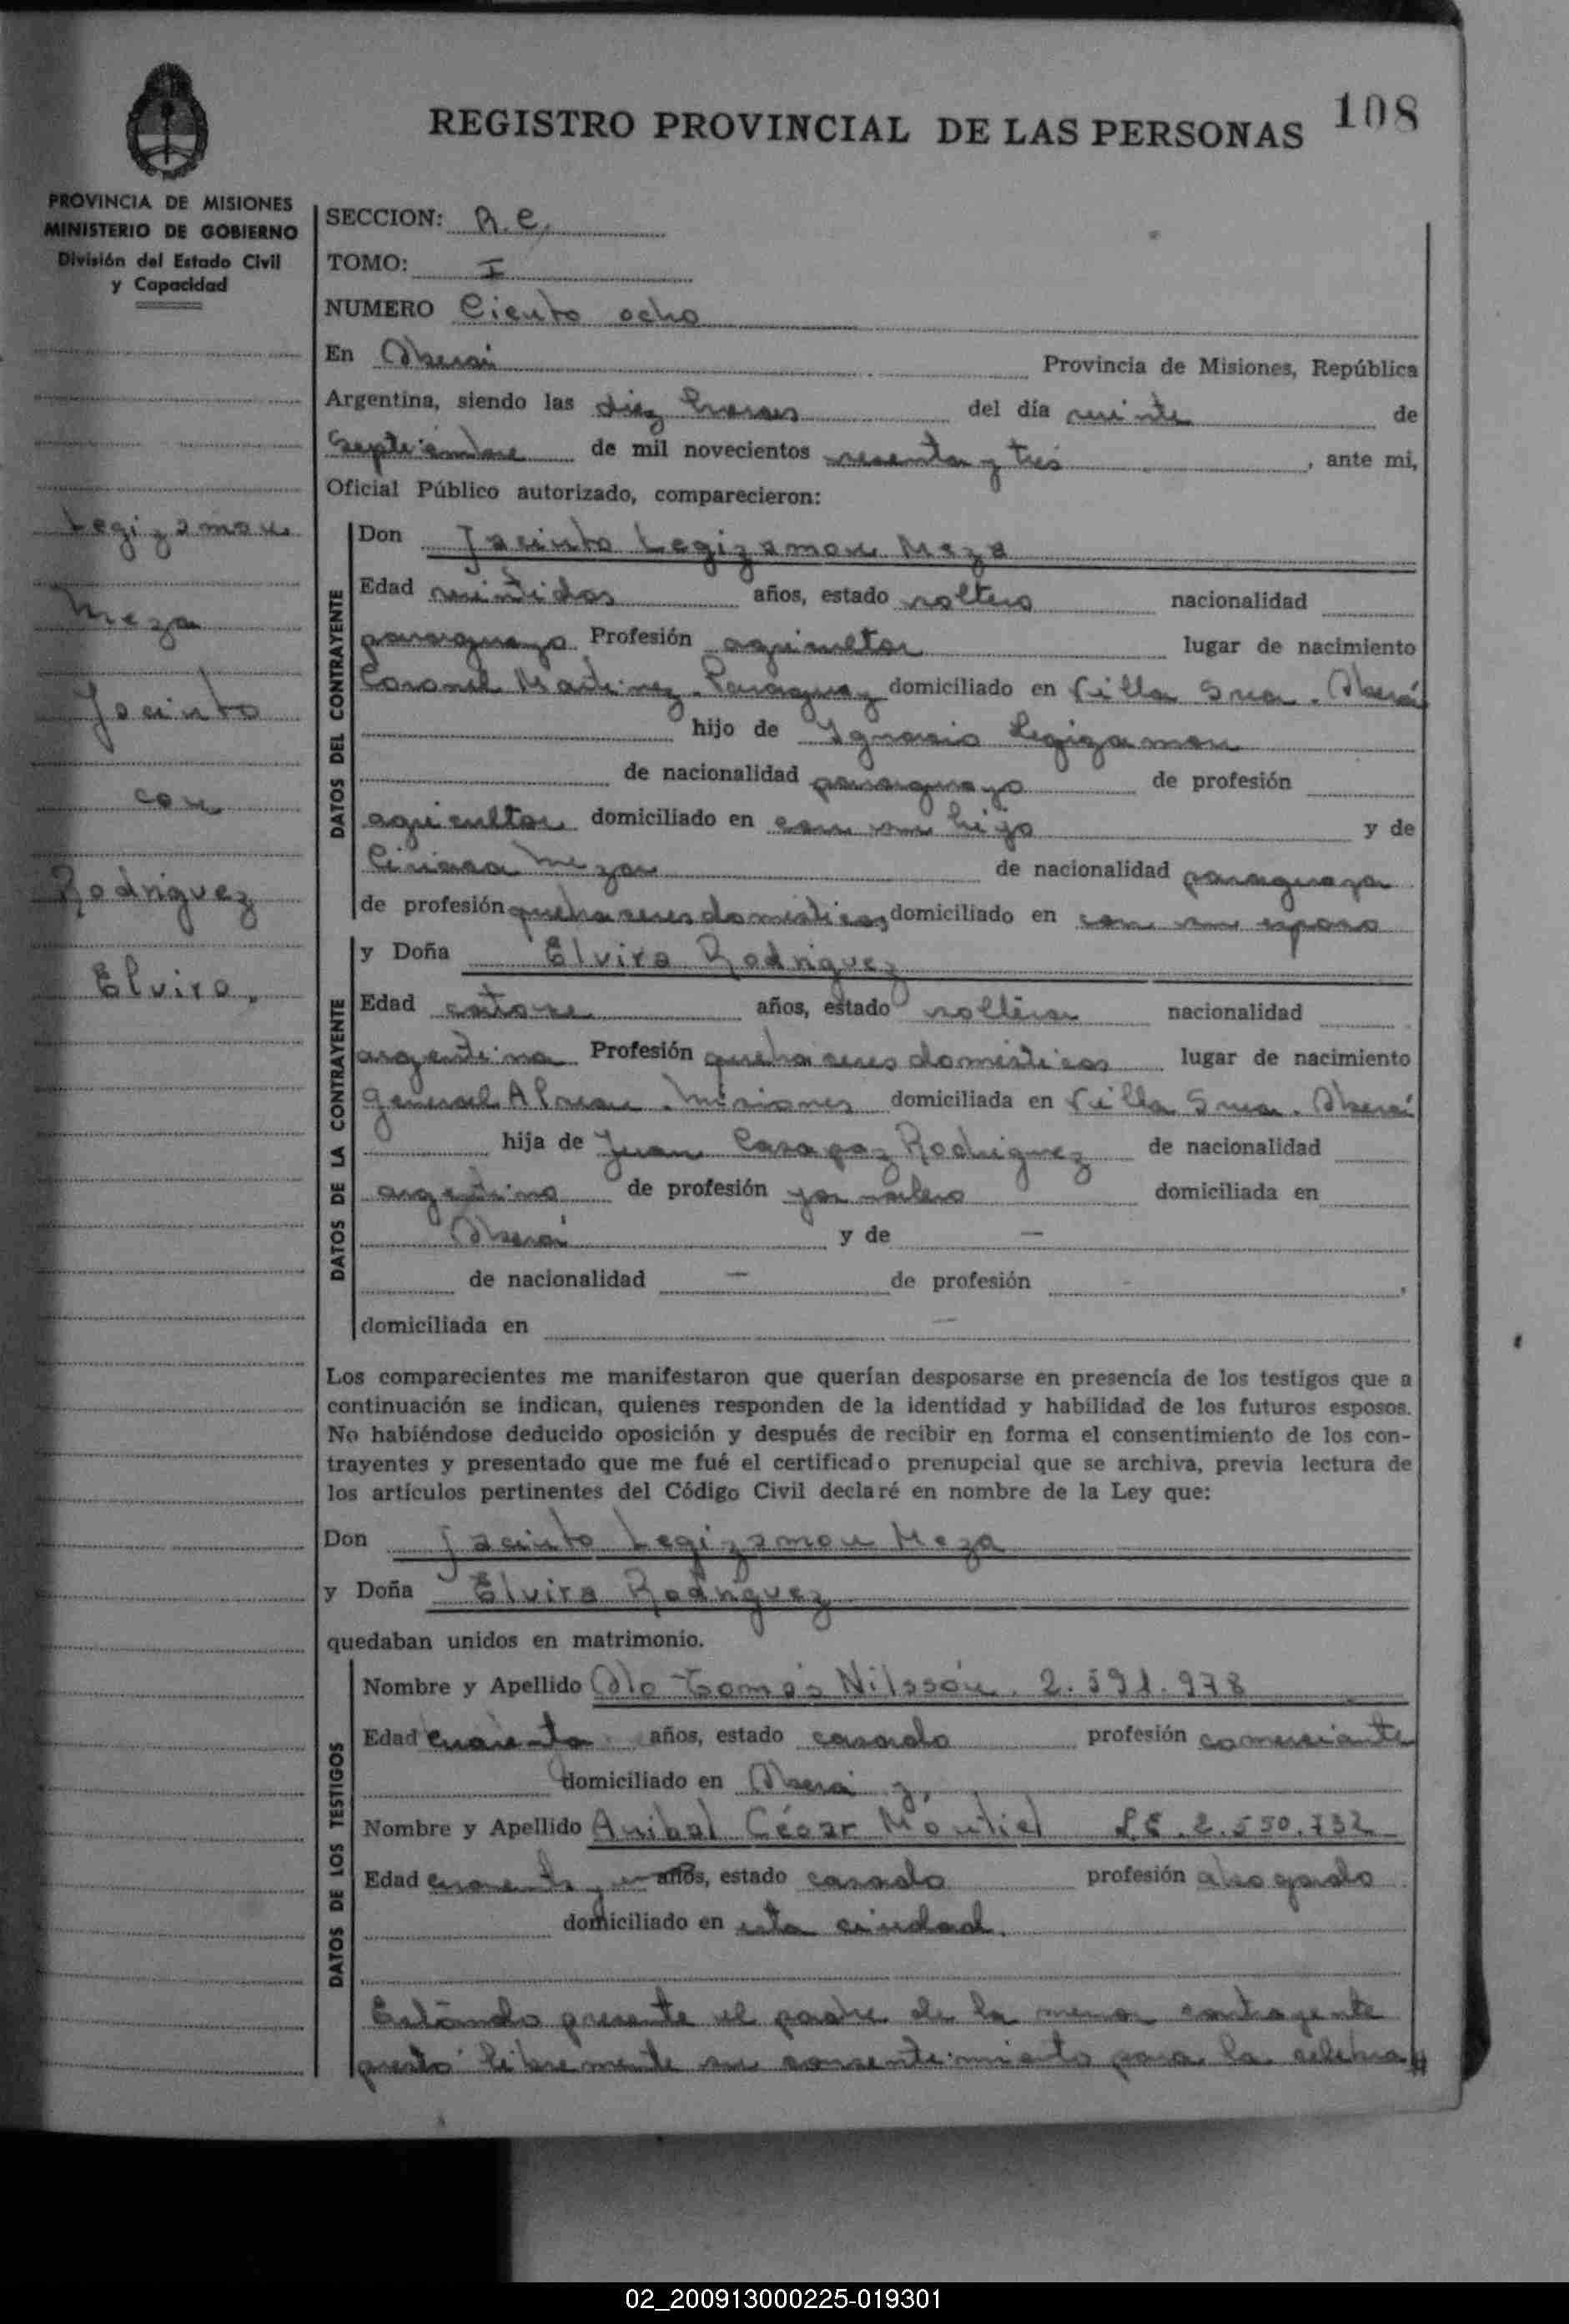 108
REGISTRO PROVINCIAL DE LAS PERSONAS
PROVINCIA DE MISIONES
MINISTERIO DE GOBIERNO
División del Estado Civil
y Capacidad
Legizamon
Meza
Jacinto
con
Rodriguez
Elvira.
SECCION: R.C.
TOMO: I
NUMERO Ciento ocho
En Oberá Provincia de Misiones, República
Argentina, siendo las diez horas del día veinte de
Septiembre de mil novecientos sesenta y tres, ante mi,
Oficial Público autorizado, comparecieron:
DATOS DEL CONTRAYENTE
Don Jacinto Legizamon Meza
Edad veintidos años, estado soltero nacionalidad
paraguayo Profesión agricultor lugar de nacimiento
Coronel Martinez. Paraguay domiciliado en Villa Svea. Oberá
hijo de Ignacio Legizamon
de nacionalidad paraguayo de profesión
agricultor domiciliado en con su hijo y de
Ciriaca Meza de nacionalidad paraguaya
de profesión quehaceres domesticos domiciliado en con su esposo
DATOS DE LA CONTRAYENTE
y Doña Elvira Rodriguez
Edad catorce años, estado soltera nacionalidad
argentina Profesión quehaceres domésticos lugar de nacimiento
General Alvear. Misiones domiciliada en Villa Svea. Oberá
hija de Juan Rodriguez de nacionalidad
argentino de profesión domiciliada en
Oberá y de —
de nacionalidad — de profesión -,
domiciliada en —
Los comparecientes me manifestaron que querían desposarse en presencia de los testigos que a
continuación se indican, quienes responden de la identidad y habilidad de los futuros esposos.
No habiéndose deducido oposición y después de recibir en forma el consentimiento de los con-
trayentes y presentado que me fué el certificado prenupcial que se archiva, previa lectura de
los artículos pertinentes del Código Civil declaré en nombre de la Ley que:
Don Jacinto Legizamon Meza
y Doña Elvira Rodriguez
quedaban unidos en matrimonio.
DATOS DE LOS TESTIGOS
Nombre y Apellido Olo Tomás Nilssón. 2.591.978
Edad cuarenta años, estado casado profesión comerciante
domiciliado en Oberá y,
Nombre y Apellido Anibal César Móntiel L.E. 2.550.732
Edad cuarenta y un años, estado casado profesión abogado
domiciliado en esta ciudad.
Estándo presente el padre de la menor contrayente
prestó libremente su consentimiento para la celebra
02_200913000225-019301